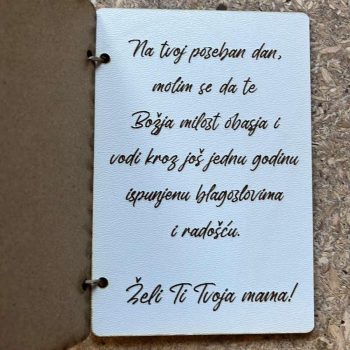 Na tvoj poseban dan,
molim se da te
Božja milost obasja i
vodi kroz još jednu godinu
ispunjenu blagoslovima
i radošću.
Želi Ti Tvoja mama!